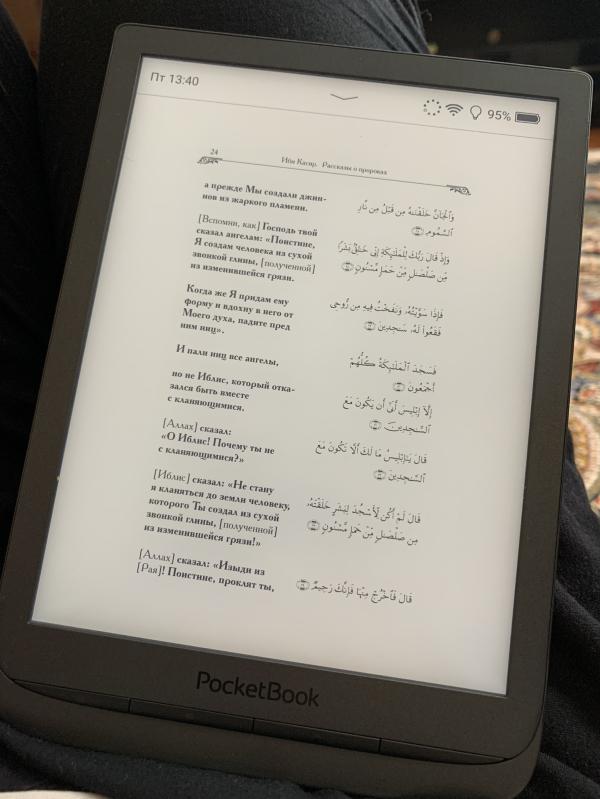 Пт 13:40
95%
24
Ибн Касир. Рассказы о пророках
а прежде Мы создали джин-
нов из жаркого пламени.
[Вспомни, как] Господь твой
сказал ангелам: «Поистине,
Я создам человека из сухой
звонкой глины, [полученной]
из изменившейся грязи.
Когда же Я придам ему
форму и вдохну в него от
Моего духа, падите пред
ним ниц».
И пали ниц все ангелы,
но не Иблис, который отка-
зался быть вместе
с кланяющимися.
[Аллах] сказал:
«О Иблис! Почему ты не
с кланяющимися?»
[Иблис] сказал: «Не стану
я кланяться до земли человеку,
которого Ты создал из сухой
звонкой глины, [полученной]
из изменившейся грязи!»
[Аллах] сказал: «Изыди из
[Рая]! Поистине, проклят ты,
وَٱلْجَآنَّ خَلَقْنَٰهُ مِن قَبْلُ مِن نَّارِ
ٱلسَّمُومِ
وَإِذْ قَالَ رَبُّكَ لِلْمَلَٰٓئِكَةِ إِنِّى خَٰلِقٌۢ بَشَرًا
مِّن صَلْصَٰلٍ مِّنْ حَمَإٍ مَّسْنُونٍ
فَإِذَا سَوَّيْتُهُۥ وَنَفَخْتُ فِيهِ مِن رُّوحِى
فَقَعُوا۟ لَهُۥ سَٰجِدِينَ
فَسَجَدَ ٱلْمَلَٰٓئِكَةُ كُلُّهُمْ
أَجْمَعُونَ
إِلَّآ إِبْلِيسَ أَبَىٰٓ أَن يَكُونَ مَعَ
ٱلسَّٰجِدِينَ
قَالَ يَٰٓإِبْلِيسُ مَا لَكَ أَلَّا تَكُونَ مَعَ
ٱلسَّٰجِدِينَ
قَالَ لَمْ أَكُن لِّأَسْجُدَ لِبَشَرٍ خَلَقْتَهُۥ
مِن صَلْصَٰلٍ مِّنْ حَمَإٍ مَّسْنُونٍ
قَالَ فَٱخْرُجْ مِنْهَا فَإِنَّكَ رَجِيمٌ
PocketBook